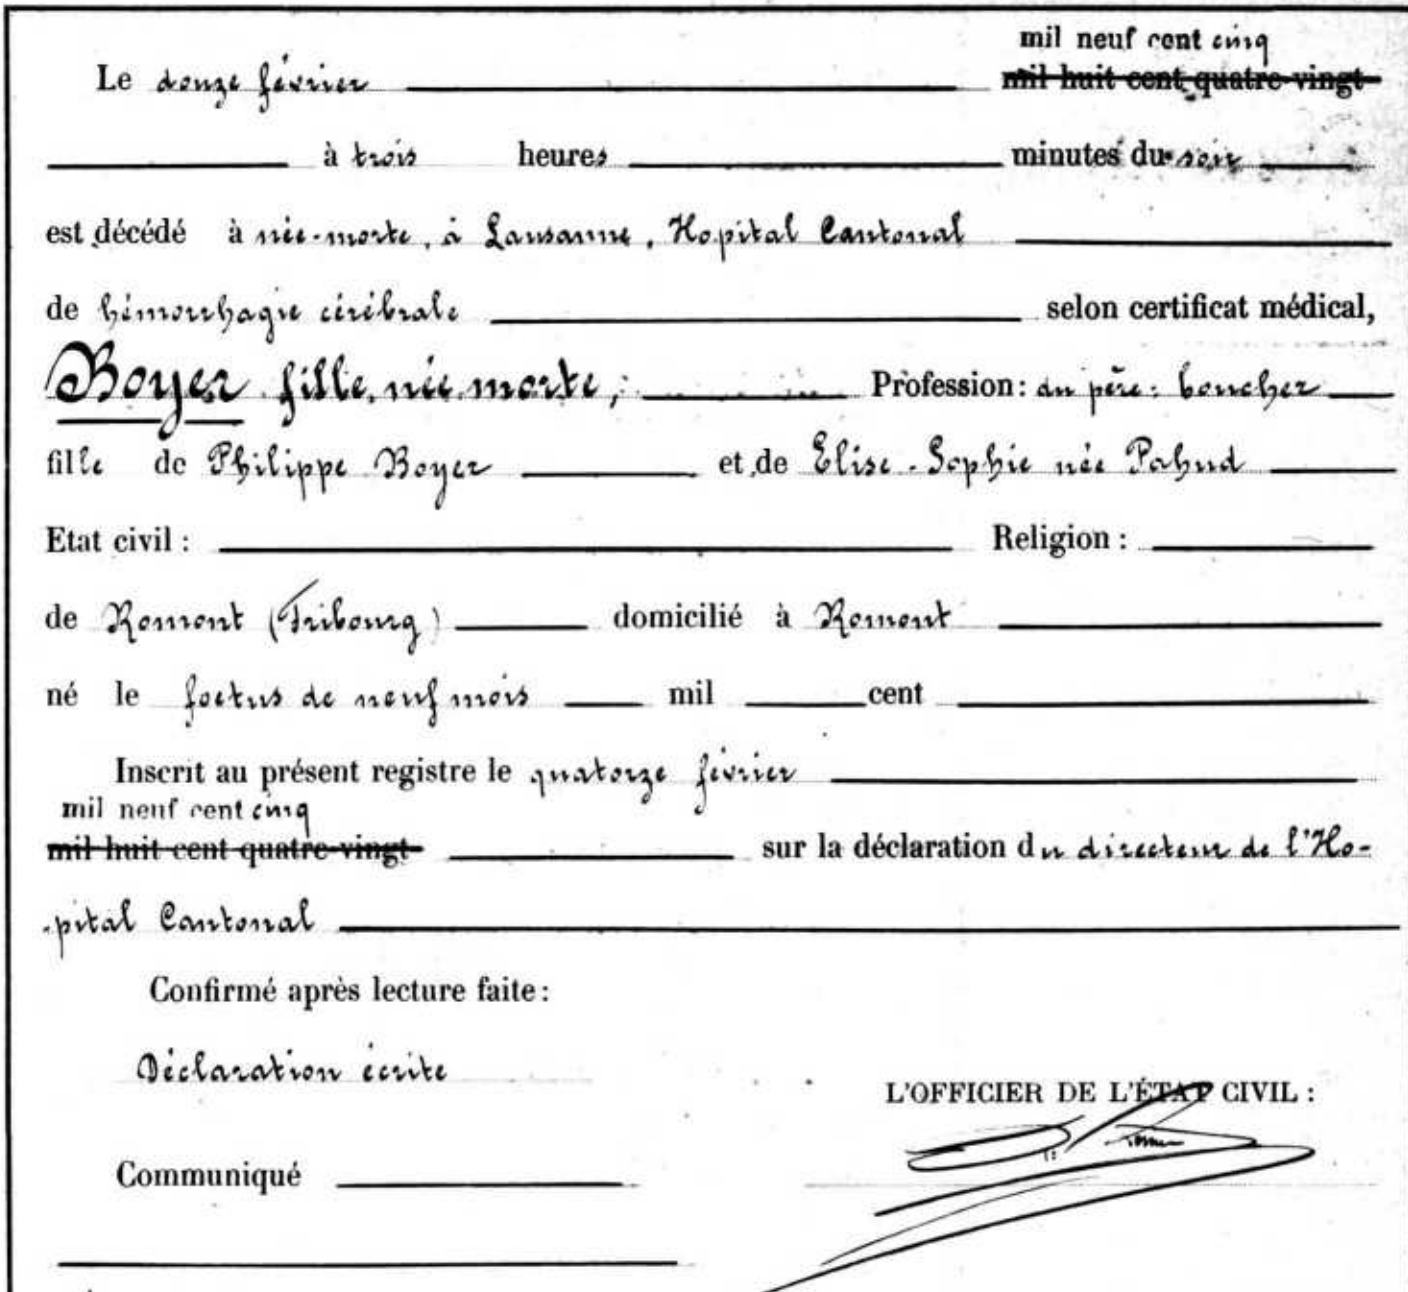 mil neuf cent cinq
Le douze février mil huit cent quatre-vingt
à trois heures minutes du soir
est décédé à née-morte, à Lausanne, Hopital Cantonal
de hémorrhagie cérébrale selon certificat médical,
Boyer fille, née morte, Profession: du père: boucher
fille de Philippe Boyer et de Elise-Sophie née Pahud
Etat civil : Religion :
de Romont (Fribourg) domicilié à Romont
né le foetus de neuf mois mil cent
Inscrit au présent registre le quatorze février
mil neuf cent cinq
mil huit cent quatre-vingt sur la déclaration du directeur de l'Ho-
-pital Cantonal
Confirmé après lecture faite :
Déclaration écrite
L'OFFICIER DE L'ÉTAT CIVIL :
Communiqué